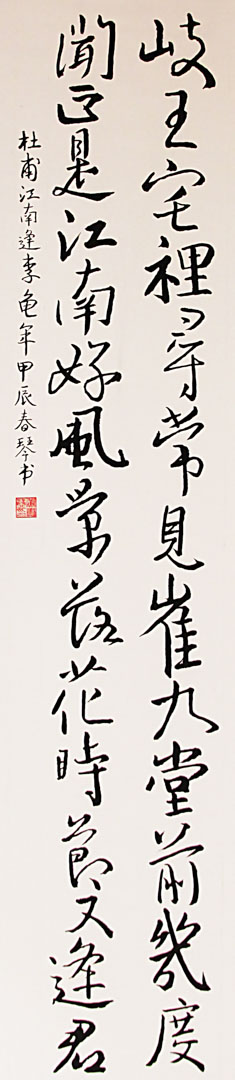 岐王宅裡尋常見崔九堂前幾度
聞正是江南好風景落花時節又逢君
杜甫江南逢李龟年甲辰春琴书